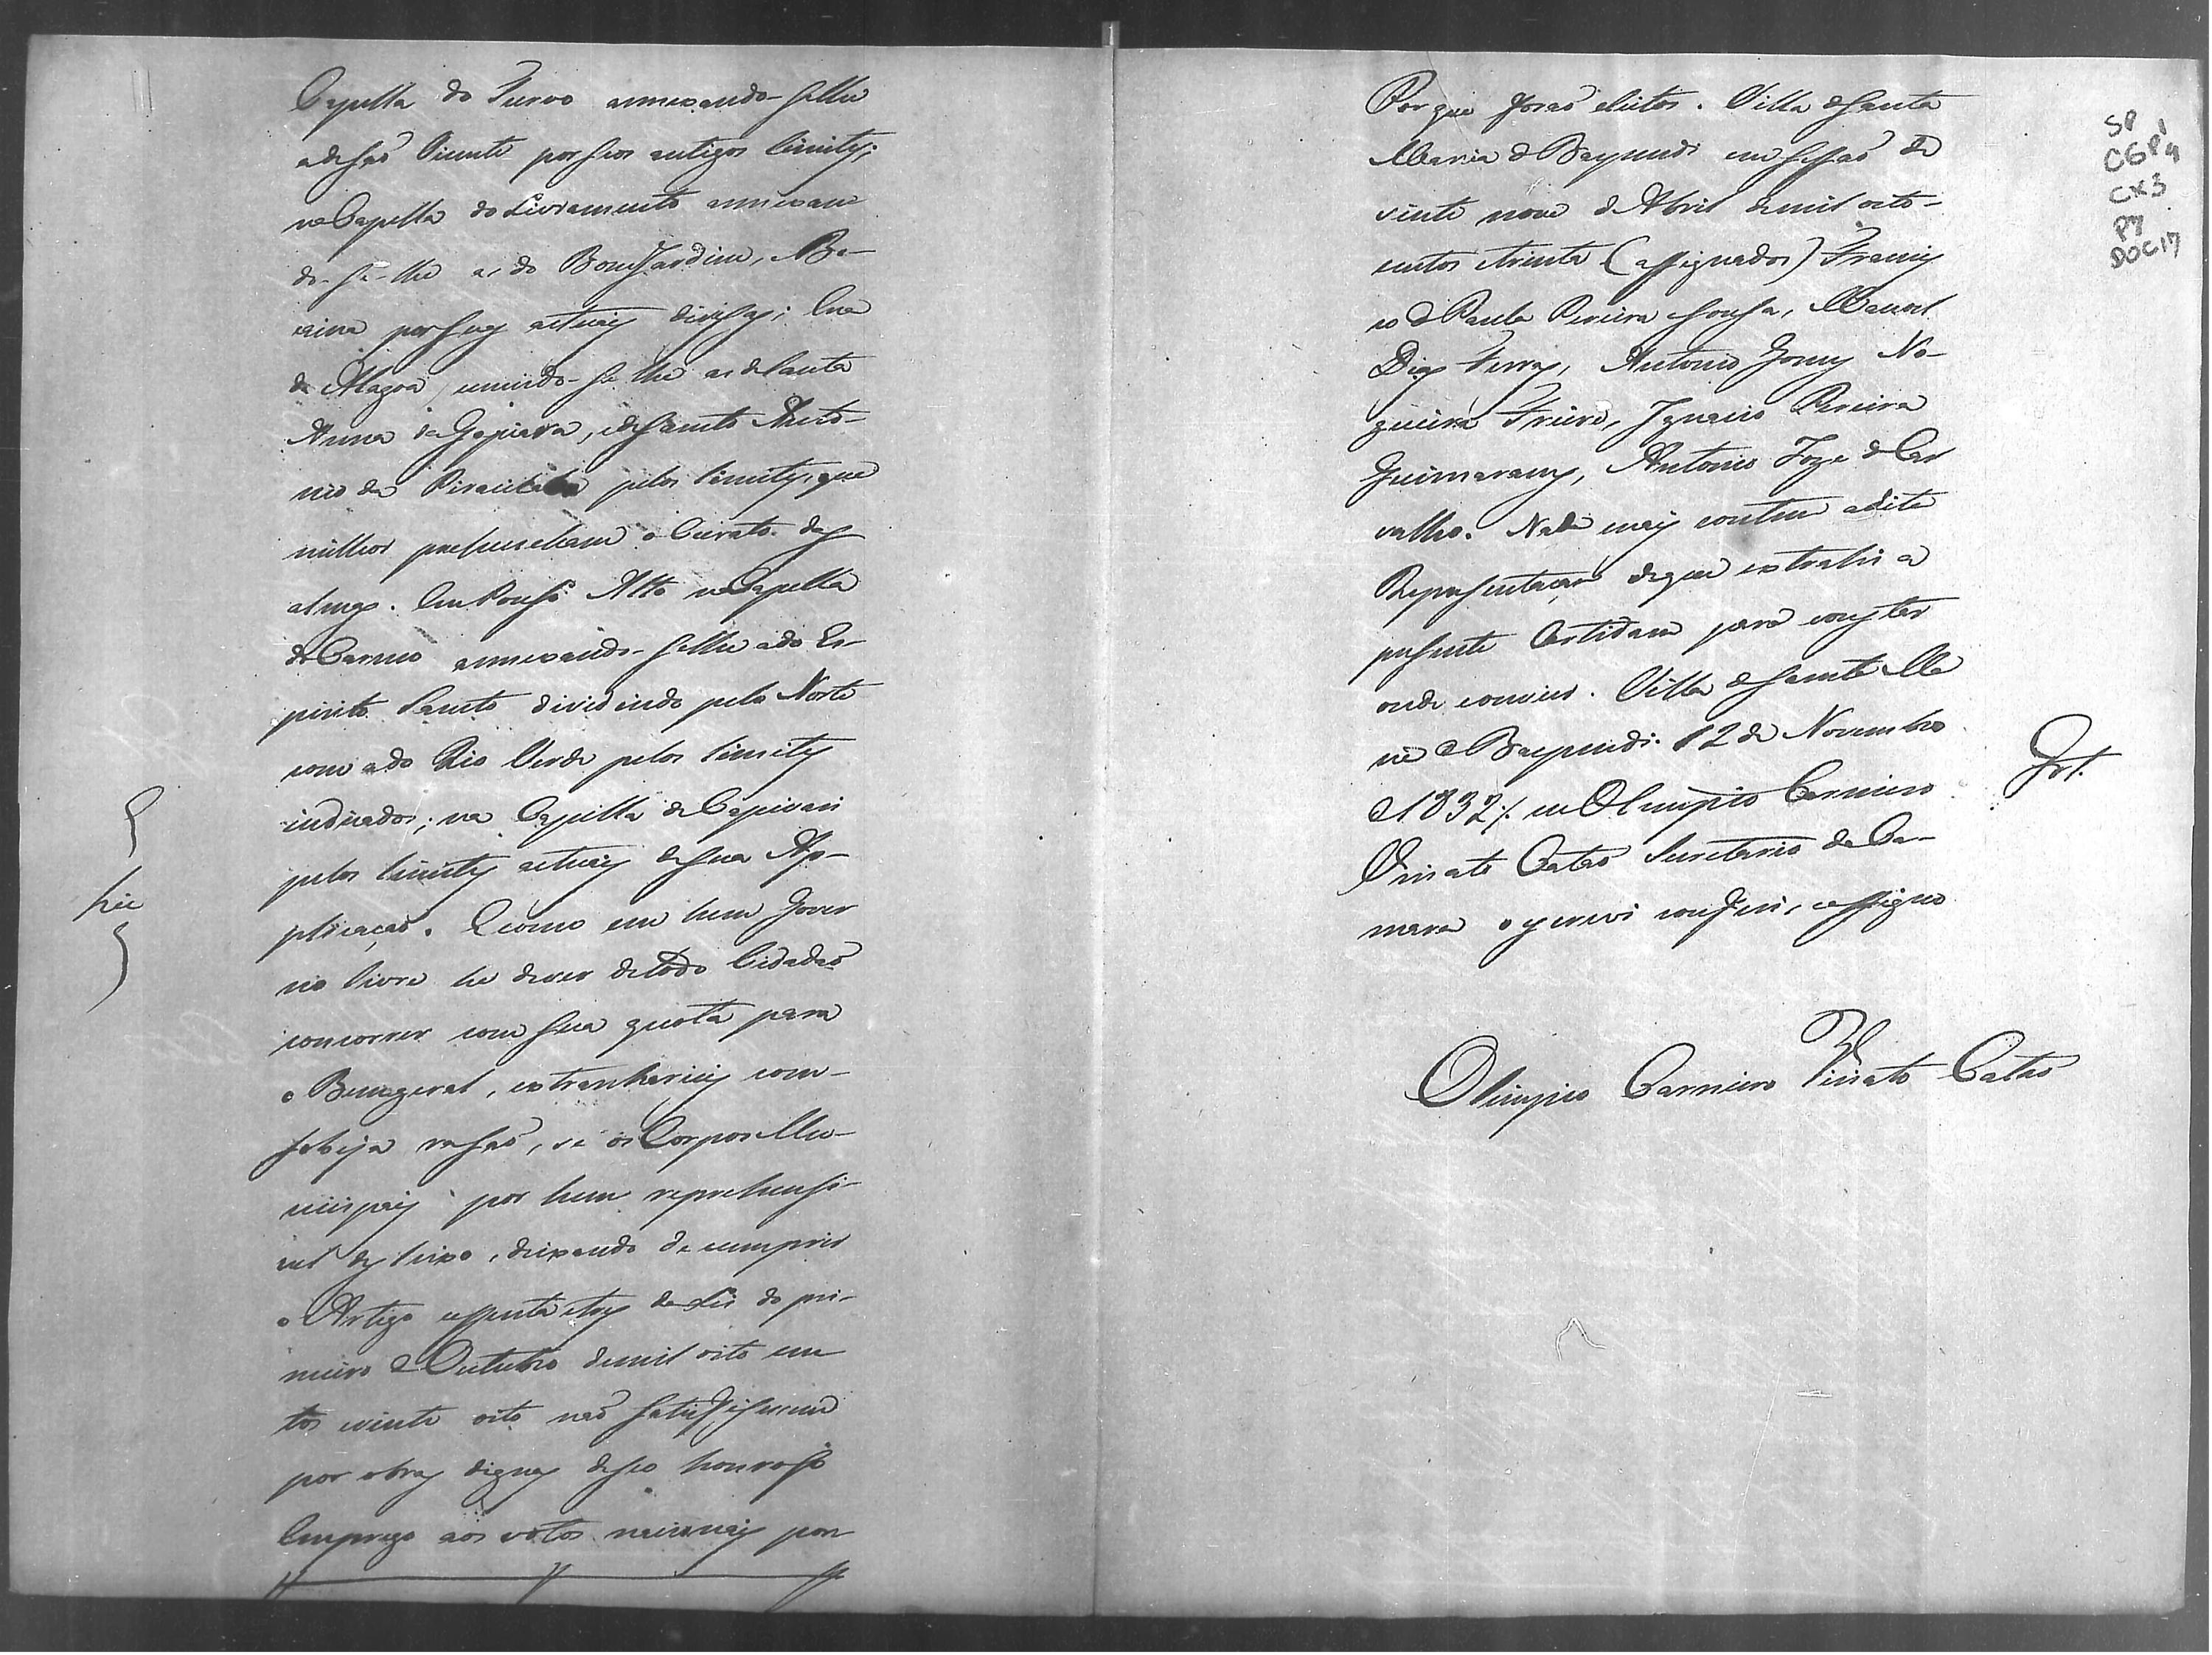 Capella do Turvo annexando-selhe
adesaõ Vicente por seos antigos limites;
na Capella do Livramento annexan
do-se-lhe as do BomJardim, 
por suas actuaes divisas; Em
da Alagoa, unindo-se lhe as deSanta
Anna do , edeSanto Anto-
nio do Piracicaba pelos limites, que
milhor prehencham o Curato das
almas. Em Pouso Alto na Capella
do Carmo annexando-selhe ado Es-
pirito Santo dividindo pelo Norte
com ado Rio Verde pelos limites
indicados; na Capella de Capivari
pelos limites actuaes desua Ap-
plicaçaõ. Ecomo em hum Gover
no livre he dever detodo Cidadaõ
concorrer com sua quota para
o Bemgeral, extranharieis com-
sobeja rasaõ, se os Corpos Mu-
nicipaes por hum reprehensi-
vel desleixo, deixando de cumprir
o Artigo da Lei do pri-
meiro d'Outubro demil oito cen
tos evinte oito naõ satisfisessem
por obras dignas deseo honroso
Emprego aos votos nacionaes por
hic
Por que foraõ eleitos. Villa deSanta
Maria de Baependi em sessaõ de
vinte nove d'Abril demil oito-
centos etrinta (assignados) Francis
co de Paula Pereira eSousa, Manoel
Dias Ferras, Antonio Gomes No-
gueira Freire, Ignacio Pereira
Guimaraens, Antonio Joze de Car
valho. Nada mais contem adita
Representaçaõ deque extrahi a
presente Certidam para constar
onde convier. Villa deSanta Ma
ria de Baependi 12 de Novembro
d'1832/. eu Olimpio Carneiro
Viriato Cataõ Secretario da Ca-
mara o escrevi conferi, e assigno
Grt.
Olimpio Carneiro Viriato Cataõ
SP
CGP 1
CX3
P7
DOC 17